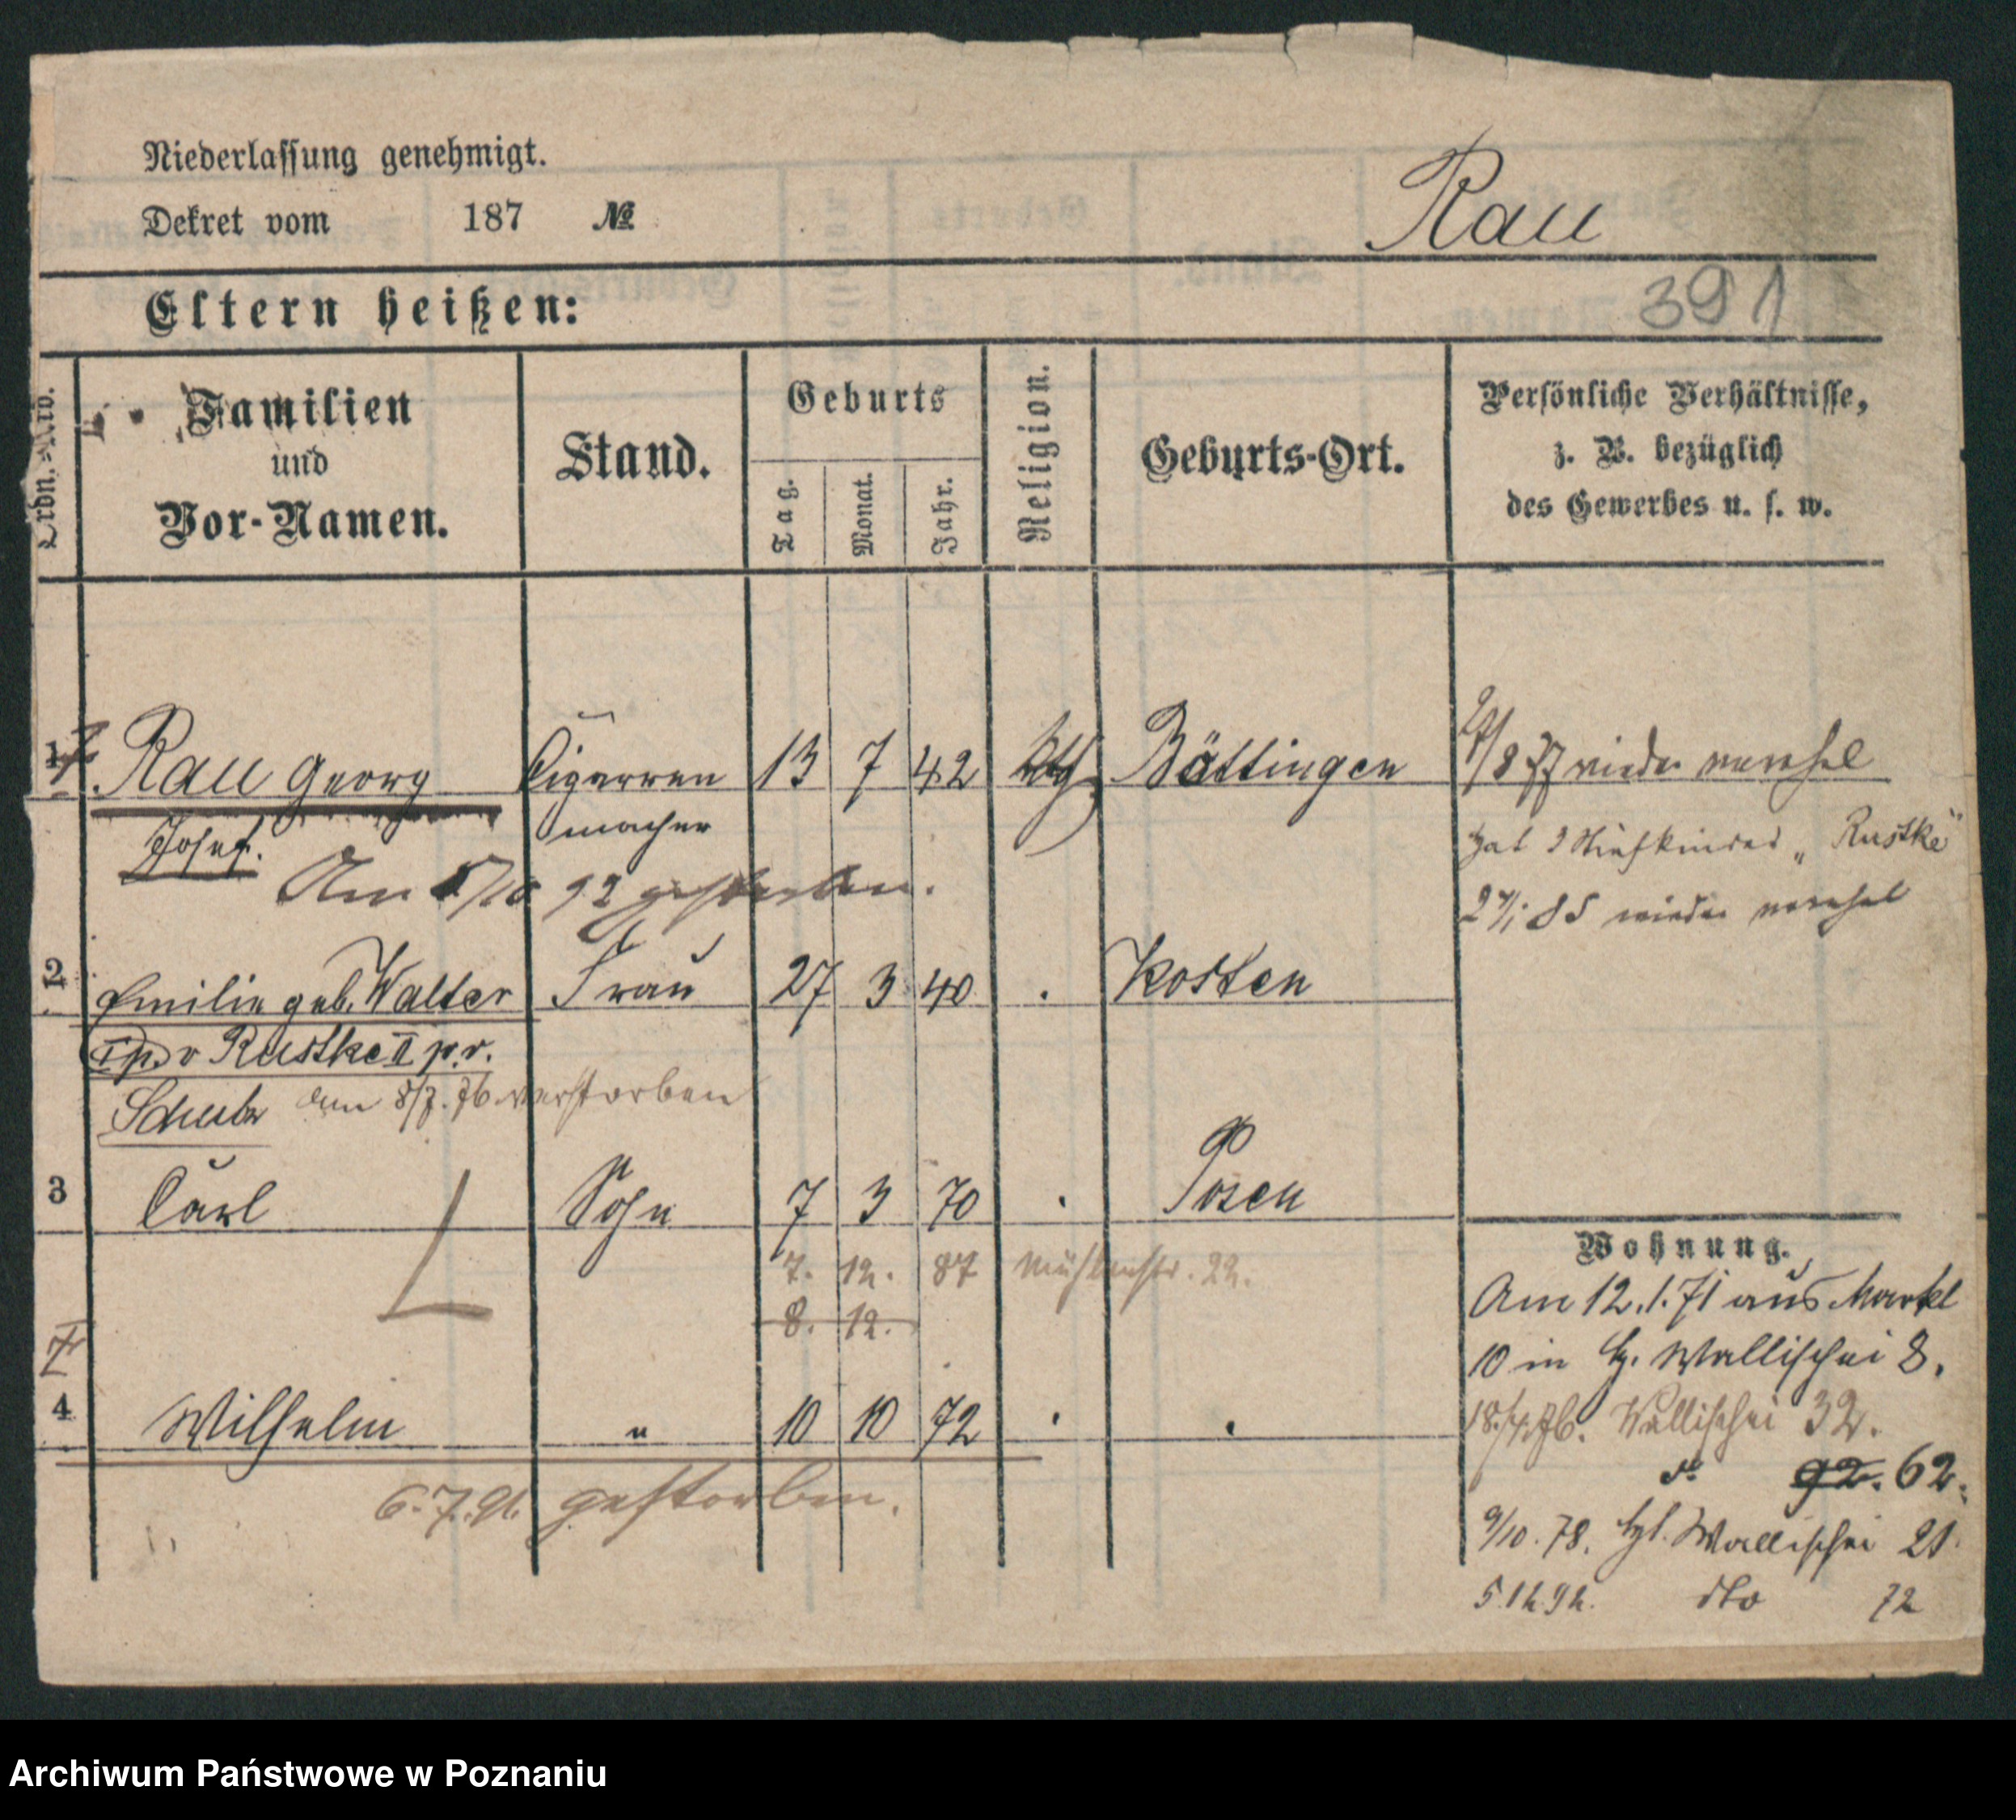 Niederlassung genehmigt.
Dekret vom 187 №
Rau
Eltern heißen:
391
Ordn.-Nro.
Familien
und
Vor-Namen.
Stand.
Geburts
Tag.
Monat.
Jahr.
Religion.
Geburts-Ort.
Persönliche Verhältnisse,
z. B. bezüglich
des Gewerbes u. s. w.
1 Rau Georg Cigarren 13 7 42 kth Böttingen
Josef. macher
Am 5/10 92 gestorben.
/8 77 wieder verehel
hat 3 Stiefkinder „Rustke"
85 wieder verehel
2 Emilie geb. Walter Frau 27 3 40 . Kosten
I p. v Rustke II p. v.
Schulz am 8/7. 76 verstorben
3 Carl Sohn 7 3 70 . Posen
7. 12. 87 Mühlenstr. 22.
8. 12.
4 Wilhelm " 10 10 72 . .
6.7.91. gestorben.
Wohnung.
Am 12.1.71 aus Markt
10 in H. Wallischei 8.
18./4.76. Wallischei 32.
dt 92. 62.
9/10. 78. Wallischei 21.
5.12.92. dto 72
Archiwum Państwowe w Poznaniu